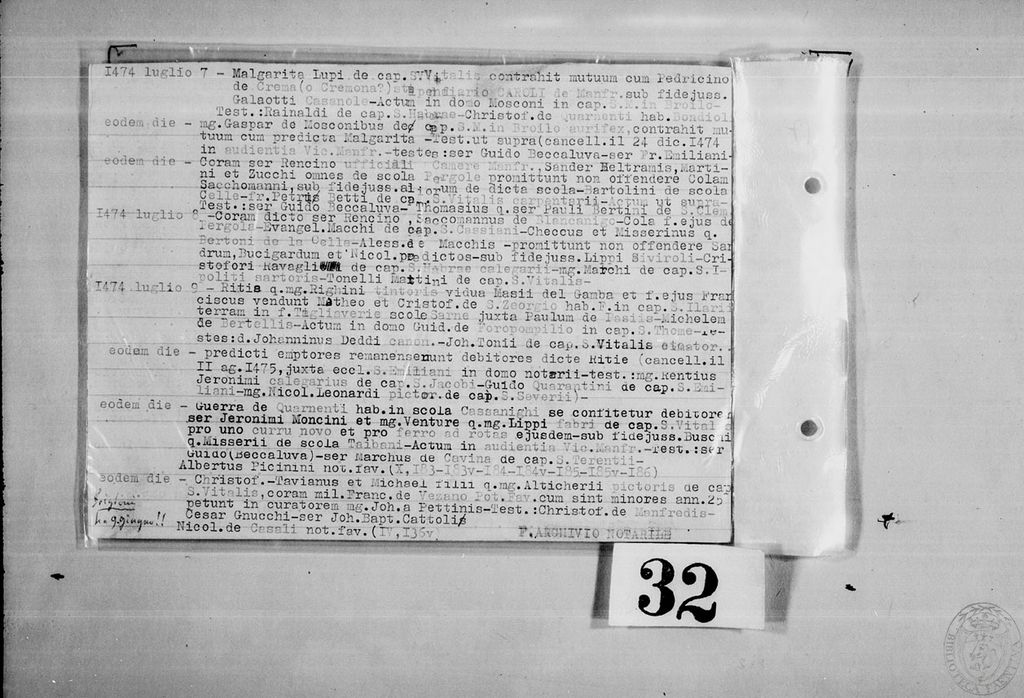 I474 luglio 7 - Malgarita Lupi de cap.S.Vitalis contrahit mutuum cum Pedricino
de Crema(o Cremona?)stipendiario CAROLI de Manfr.sub fidejuss.
Galaotti Casanole-Actum in domo Mosconi in cap.S.M.in Broilo-
Test.:Rainaldi de cap.S.Habrae-Christof.de Quarnenti hab.Bondiol
eodem die - mg.Gaspar de Mosconibus de cap.S.M.in Broilo aurifex,contrahit mu-
tuum cum predicta Malgarita -Test.ut supra(cancell.il 24 dic.I474
in audientia Vic.Manfr.-testes:ser Guido Beccaluva-ser Fr.Emiliani-
eodem die - Coram ser Rencino officiali Camere Manfr.,Sander Beltramis,Marti-
ni et Zucchi omnes de scola Pergole promittunt non offendere Colam
Sacchomanni,sub fidejuss.aliorum de dicta scola-Bartolini de scola
Celle-fr.Petri Betti de cap.S.Vitalis carpentarii-Actum ut supra-
Test.:ser Guido Beccaluva-Thomasius q.ser Pauli Bertini de S.Clem
I474 luglio 8 -Coram dicto ser Rencino ,Saccomannus de Blancanigo-Cola f.ejus de
Pergola-Evangel.Macchi de cap.S.Cassiani-Checcus et Misserinus q.
Bertoni de la Cella-Aless.de Macchis -promittunt non offendere San
drum,Bucigardum et Nicol.predictos-sub fidejuss.Lippi Siviroli-Cri-
stofori Ravagli de cap.S.Habrae calegarii-mg.Marchi de cap.S.I-
politi sartoris-Tonelli Martini de cap.S.Vitalis-
I474 luglio 9 - Ritia q.mg.Righini tintoris vidua Masii del Gamba et f.ejus Fran
ciscus vendunt Matheo et Cristof.de S.Zeorgio hab.F.in cap.S.Ilarii
terram in f.Tagliaverie scole Sarne juxta Paulum de Pasiis-Michelem
de Bertellis-Actum in domo Guid.de Foropompilio in cap.S.Thome-Te-
stes:d.Johanninus Deddi canon.-Joh.Tonii de cap.S.Vitalis cimator.
eodem die - predicti emptores remanserunt debitores dicte Ritie (cancell.il
II ag.I475,juxta eccl.S.Emiliani in domo notarii-test.:mg.Rentius
Jeronimi calegarius de cap.S.Jacobi-Guido Quarantini de cap.S.Emi-
liani-mg.Nicol.Leonardi pictor.de cap.S.Severi)-
eodem die - Guerra de Quarnenti hab.in scola Cassanighi se confitetur debitorem
ser Jeronimi Moncini et mg.Venture q.mg.Lippi fabri de cap.S.Vitalis
pro uno curru novo et pro ferro ad rotas ejusdem-sub fidejuss.Buschi
q.Misserii de scola Taibani-Actum in audientia Vic.Manfr.-Test.:ser
Guido(Beccaluva)-ser Marchus de Cavina de cap.S.Terentii-
Albertus Picinini not.fav.(X,I83-I83v-I84-I84v-I85-I85v-I86)
eodem die - Christof.-Tavianus et Michael filii q.mg.Alticherii pictoris de cap
S.Vitalis,coram mil.Franc.de Vezano Pot.Fav.cum sint minores ann.25
petunt in curatorem mg.Joh.a Pettinis-Test.:Christof.de Manfredis-
Cesar Gnucchi-ser Joh.Bapt.Cattoli
Nicol.de Casali not.fav.(IV,I36v
F.ARCHIVIO NOTARILE
32